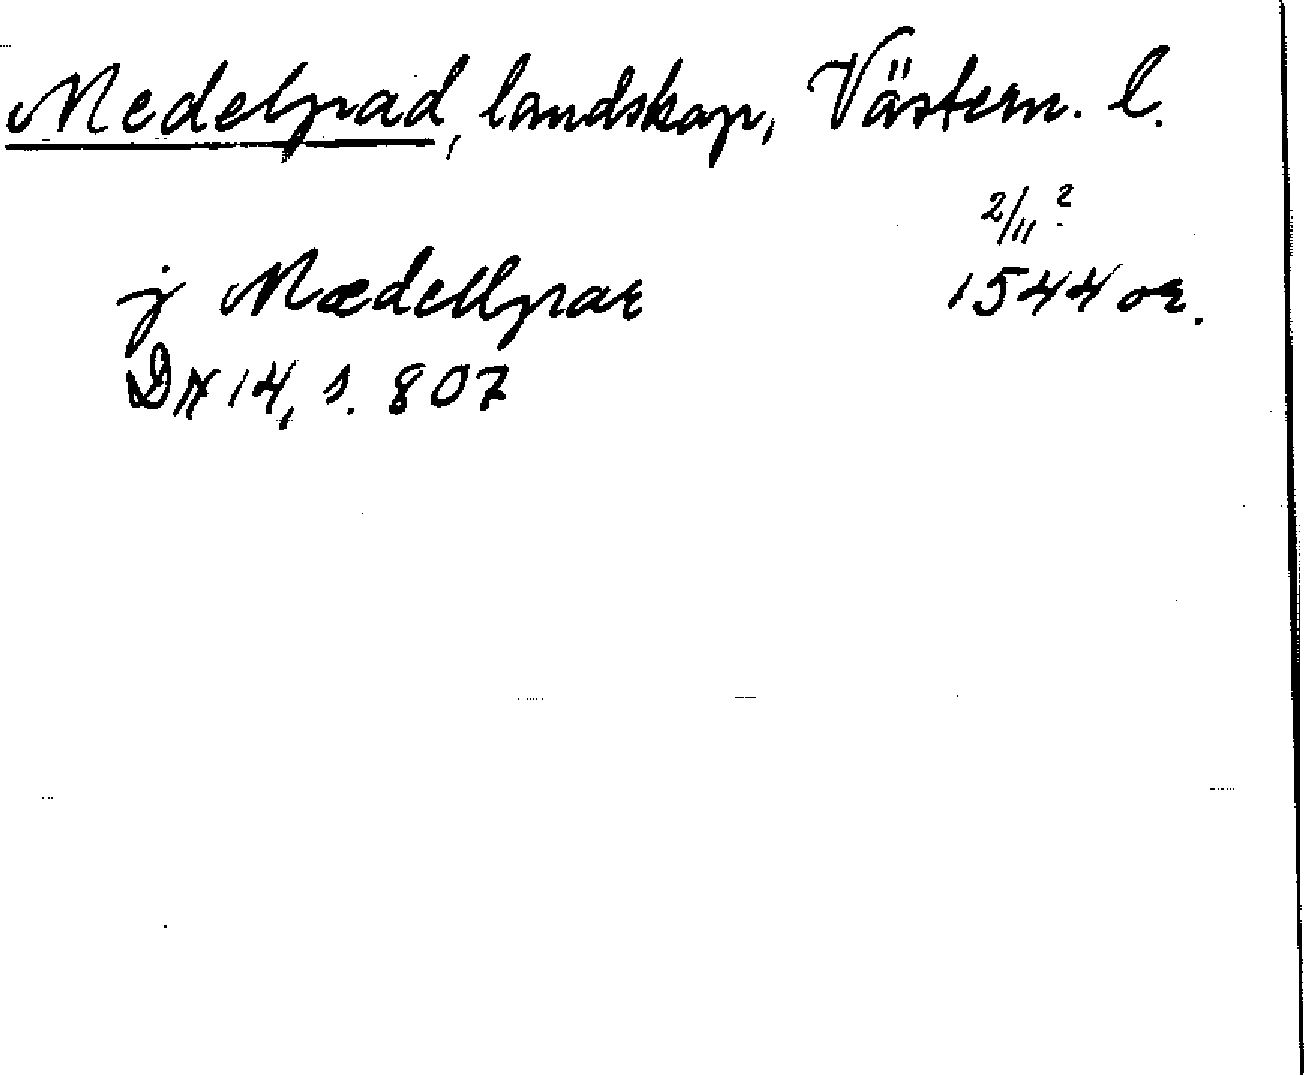 Medelpad, landskap, Västern. l.
2/11 ?
j Mædellpar 1544 or.
DN 14, s. 807